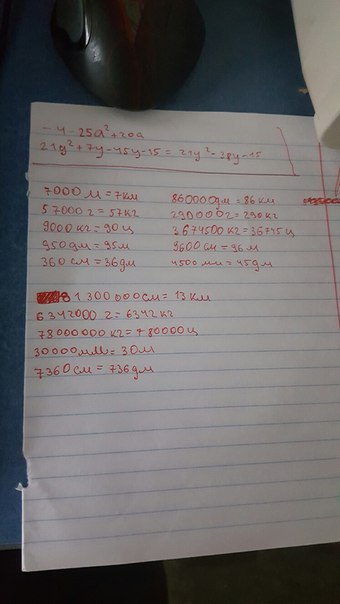 -4-25a²+20a
21y²+7y-45y-15=21y²-38y-15
7000м=7км
57000г=57кг
9000кг=90ц
950дм=95м
360см=36дм
860000дм=86км
290000г=290кг
3674500кг=36745ц
9600см=96м
4500мм=45дм
1300000см=13км
6342000г=6342кг
78000000кг=780000ц
30000мм=30м
7360см=736дм